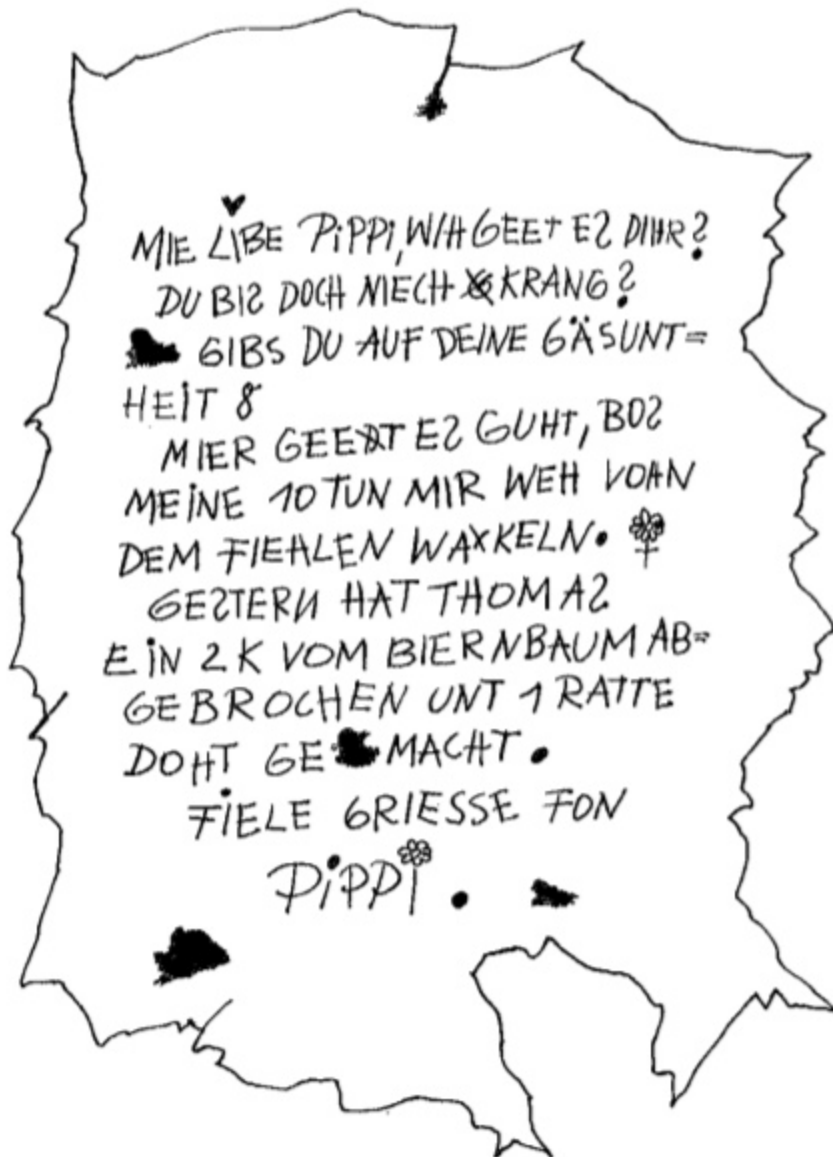 MIE LIBE PIPPI, WIH GEET ES DIHR?
DU BIS DOCH NIECH KRANG?
GIBS DU AUF DEINE GÄSUNT=
HEIT 8
MIER GEET ES GUHT, BOS
MEINE 10 TUN MIR WEH VOHN
DEM FIEHLEN WAXKELN.
GESTERN HAT THOMAS
EIN 2K VOM BIERNBAUM AB=
GEBROCHEN UNT 1 RATTE
DOHT GEMACHT.
FIELE GRIESSE FON
PIPPI.